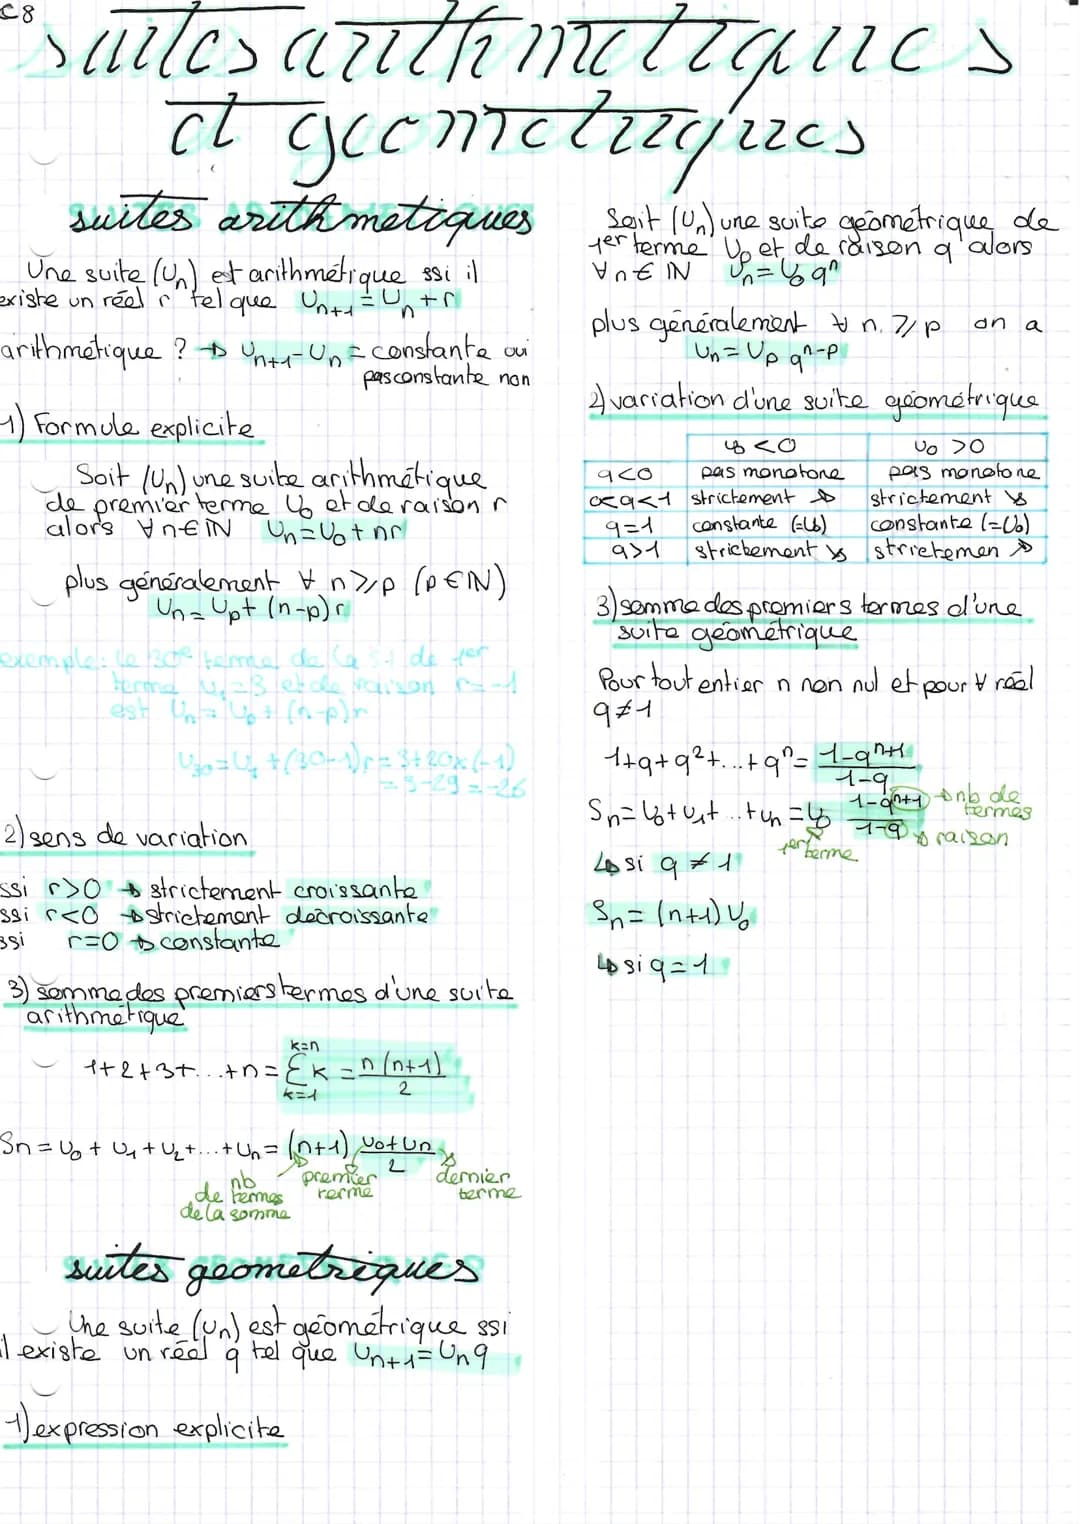 C8
suites arithmetiques
et geometriques
suites arithmetiques
Une suite (Un) est arithmétique ssi il
existe un réel r tel que Un+1 = Un + r
arithmetique ? → Un+1 - Un = constante oui
pas constante non
1) Formule explicite
Soit (Un) une suite arithmétique
de premier terme U0 et de raison r
alors ∀ n ∈ IN Un = U0 + nr
plus généralement ∀ n ⩾ p (p ∈ IN)
Un = Up + (n-p) r
exemple: le 30e terme de la s.a de 1er
terme U1 = 3 et de raison r = -1
est Un = U0 + (n-p)r
U30 = U1 + (30-1)r = 3+20x(-1)
= 3-29 = -26
2) sens de variation
ssi r>0 → strictement croissante
ssi r<0 → strictement decroissante
ssi r=0 → constante
3) somme des premiers termes d'une suite
arithmétique
k=n
1+2+3+...+n = Σ k = n(n+1)
k=1 2
Sn = U0 + U1 + U2 + ... + Un = (n+1) U0+Un
2
nb premier dernier
de termes terme terme
de la somme
suites geometriques
Une suite (Un) est géométrique ssi
il existe un réel q tel que Un+1 = Un q
1) expression explicite
Soit (Un) une suite géométrique de
1er terme Up et de raison q alors
∀ n ∈ IN Un = U0 q^n
plus généralement ∀ n ⩾ p on a
Un = Up q^n-p
2) variation d'une suite géométrique
U0 <0 U0 >0
q<0 pas monotone pas monotone
0<q<1 strictement ↗ strictement ↘
q=1 constante (=U0) constante (=U0)
q>1 strictement ↘ strictemen ↗
3) somme des premiers termes d'une
suite géométrique
Pour tout entier n non nul et pour ∀ réel
q ≠ 1
1+q+q²+...+q^n = 1-q^n+1
1-q
Sn = U0 + U1 + ... + Un = U0 1-q^n+1 → nb de
termes
1-q → raison
1er terme
↳ si q ≠ 1
Sn = (n+1) U0
↳ si q = 1